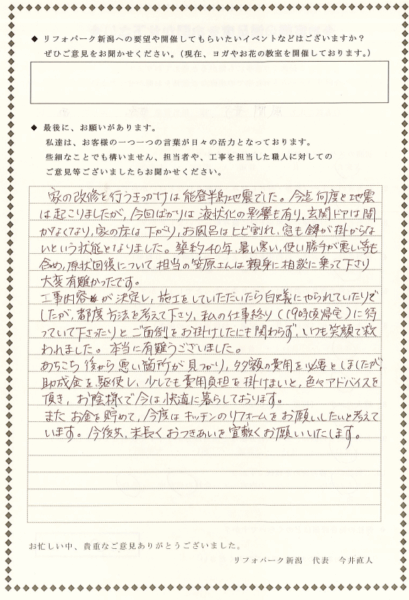 ◆ リフォパーク新潟への要望や開催してもらいたいイベントなどはございますか？
ぜひご意見をお聞かせください。（現在、ヨガやお花の教室を開催しております。）
◆ 最後に、お願いがあります。
私達は、お客様の一つ一つの言葉が日々の活力となっております。
些細なことでも構いません、担当者や、工事を担当した職人に対しての
ご意見等ございましたらお聞かせください
家の改修を行うきっかけは能登半島地震でした。今迄何度と地震
は起こりましたが、今回ばかりは液状化の影響も有り、玄関ドアは開
かなくなり、家の床は下がり、お風呂はヒビ割れ、窓も鍵が掛からな
いという状態となりました。築約40年、暑い寒い、使い勝手が悪い等も
含め、原状回復について担当の笠原さんは親身に相談に乗って下さり
大変有難かったです。
工事内容が決定し、施工をしていただいたら白蟻にやられていたりで
したが、都度方法を考えて下さり、私の仕事終り（19時頃帰宅）に行
っていて下さったりとご面倒をお掛けしたにも関わらず、いつも笑顔で救
われました。本当に有難うございました。
あちこち後から悪い箇所が見つかり、多額の費用を必要としましたが
助成金を駆使し、少しでも費用負担を掛けまいと、色々アドバイスを
頂き、お陰様で今は快適に暮らしております。
またお金を貯めて、今度はキッチンのリフォームをお願いしたいと考えて
います。今後共、末長くおつきあいを宜敷くお願いいたします。
お忙しい中、貴重なご意見ありがとうございました。
リフォパーク新潟 代表 今井直人